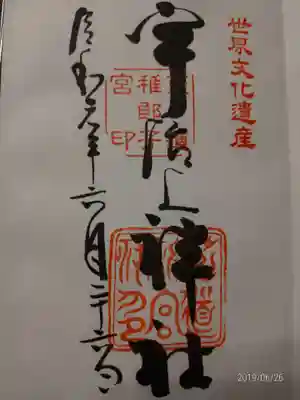 世界文化遺産
宇治上神社
令和元年六月二十六日
稚郎子
宮印
2019/06/26